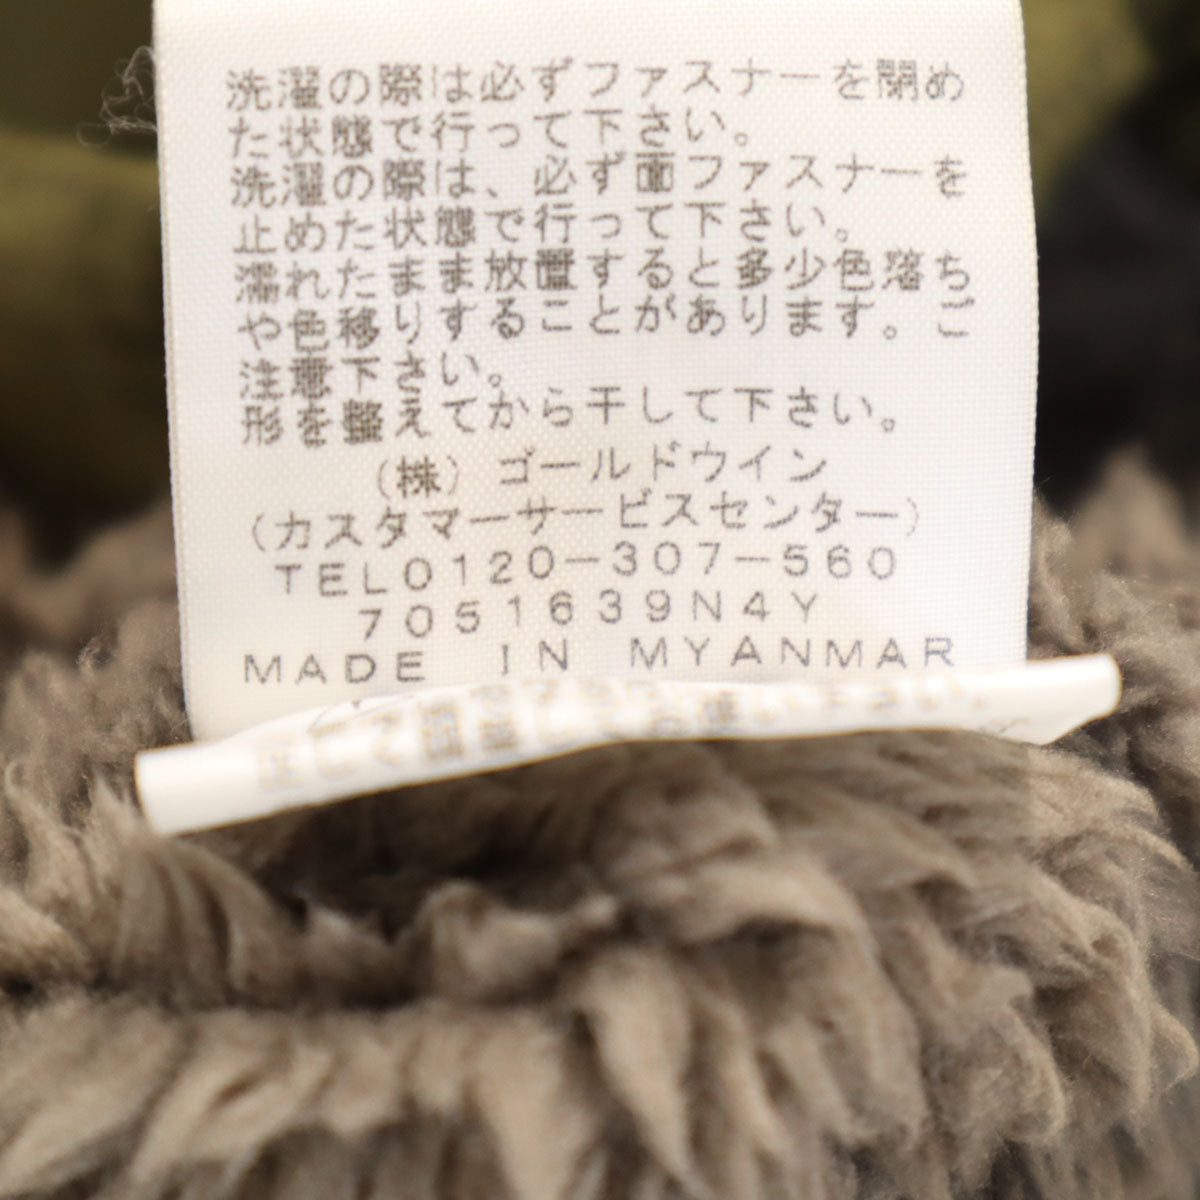 洗濯の際は必ずファスナーを閉め
た状態で行って下さい。
洗濯の際は、必ず面ファスナーを
止めた状態で行って下さい。
濡れたまま放置すると多少色落ち
や色移りすることがあります。ご
注意下さい。
形を整えてから干して下さい。
(株) ゴールドウイン
(カスタマーサービスセンター)
TEL0120-307-560
7051639N4Y
MADE IN MYANMAR